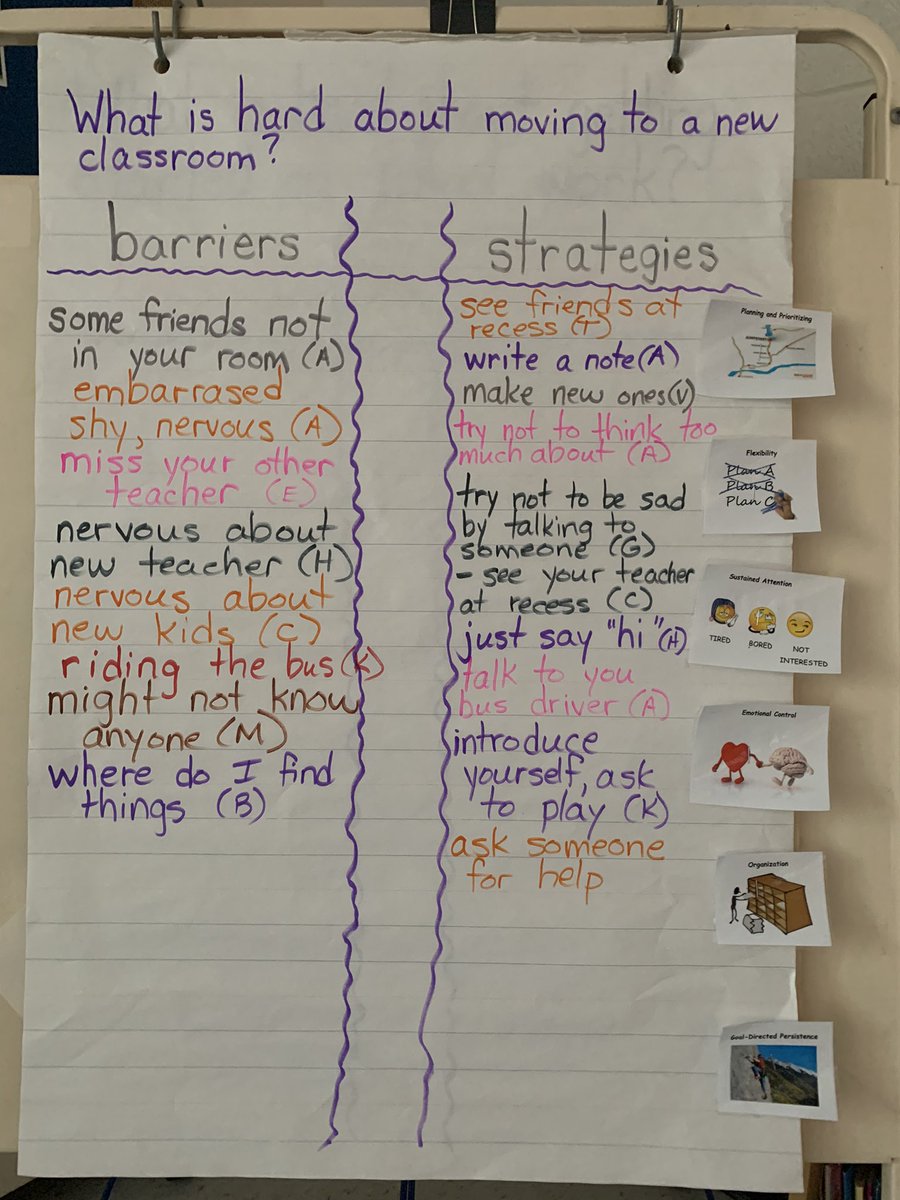 What is hard about moving to a new
classroom?
barriers
some friends not
in your room (A)
embarrased
shy, nervous (A)
miss your other
teacher (E)
nervous about
new teacher (H)
nervous about
new kids (C)
riding the bus (K)
might not know
anyone (M)
where do I find
things (B)
strategies
see friends at
recess (T)
write a note (A)
make new ones (V)
try not to think too
much about (A)
try not to be sad
by talking to
someone (G)
- see your teacher
at recess (C)
just say "hi" (H)
talk to you
bus driver (A)
introduce
yourself, ask
to play (K)
ask someone
for help
Planning and Prioritizing
Flexibility
Plan A
Plan B
Plan C
Sustained Attention
TIRED
BORED
NOT
INTERESTED
Emotional Control
Organization
Goal-Directed Persistence